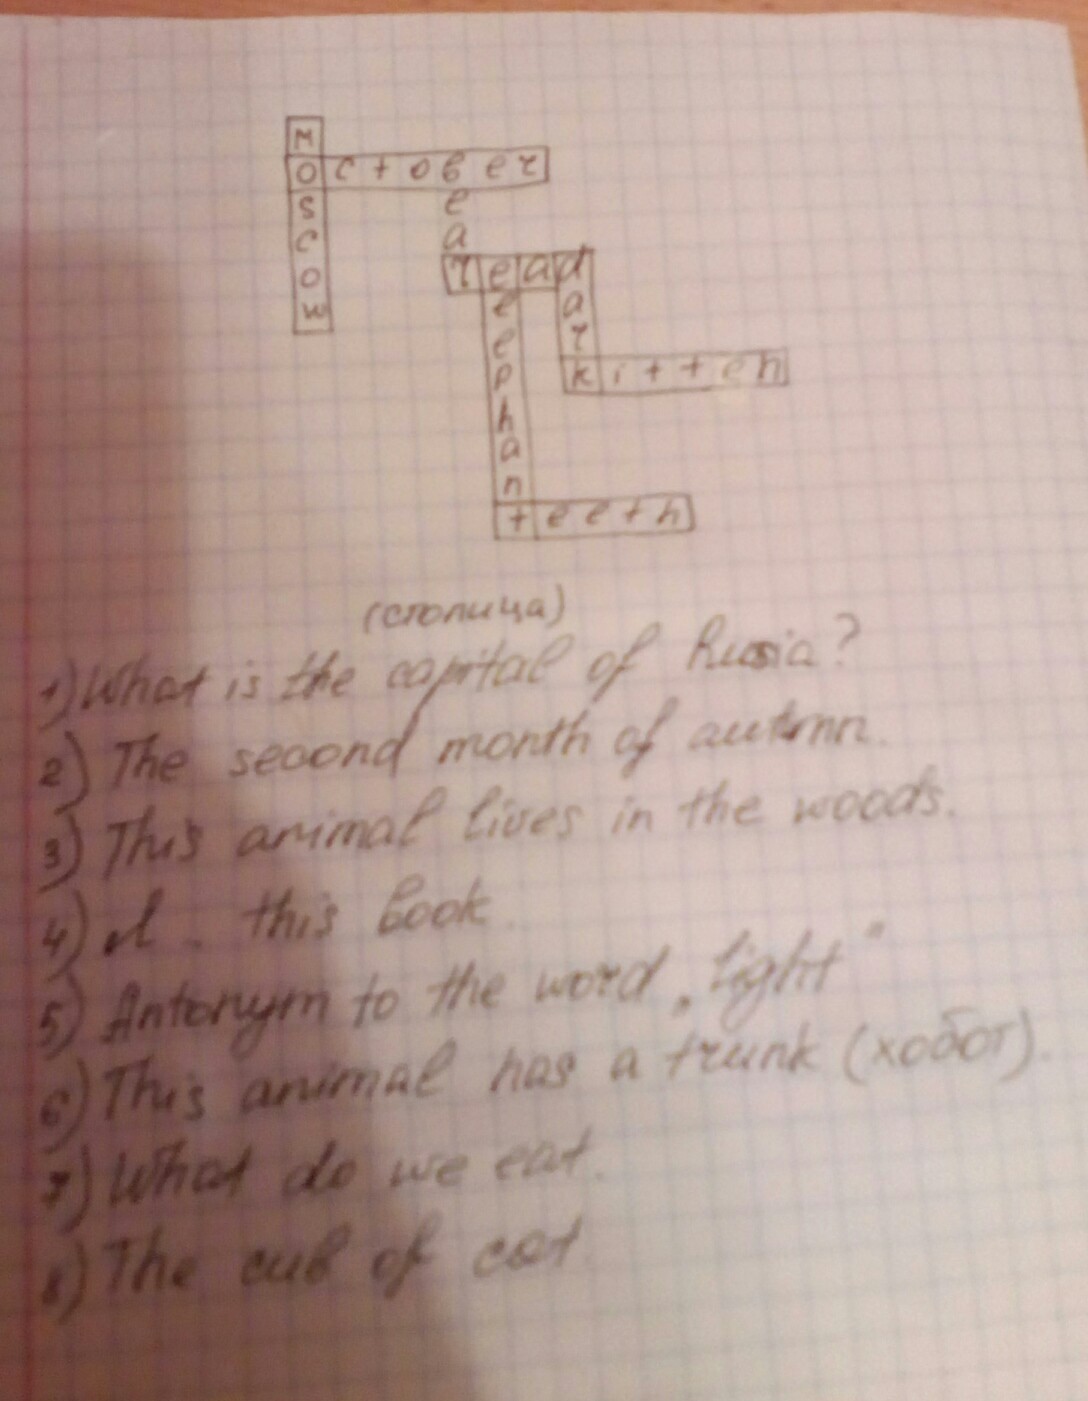 Moscow
october
bear
read
dark
elephant
kitten
teeth
(столица)
1) What is the capital of Russia?
2) The second month of autumn.
3) This animal lives in the woods.
4) I .. this book.
5) Antonym to the word „light“
6) This animal has a trunk (хобот).
7) What do we eat.
8) The cub of cat.